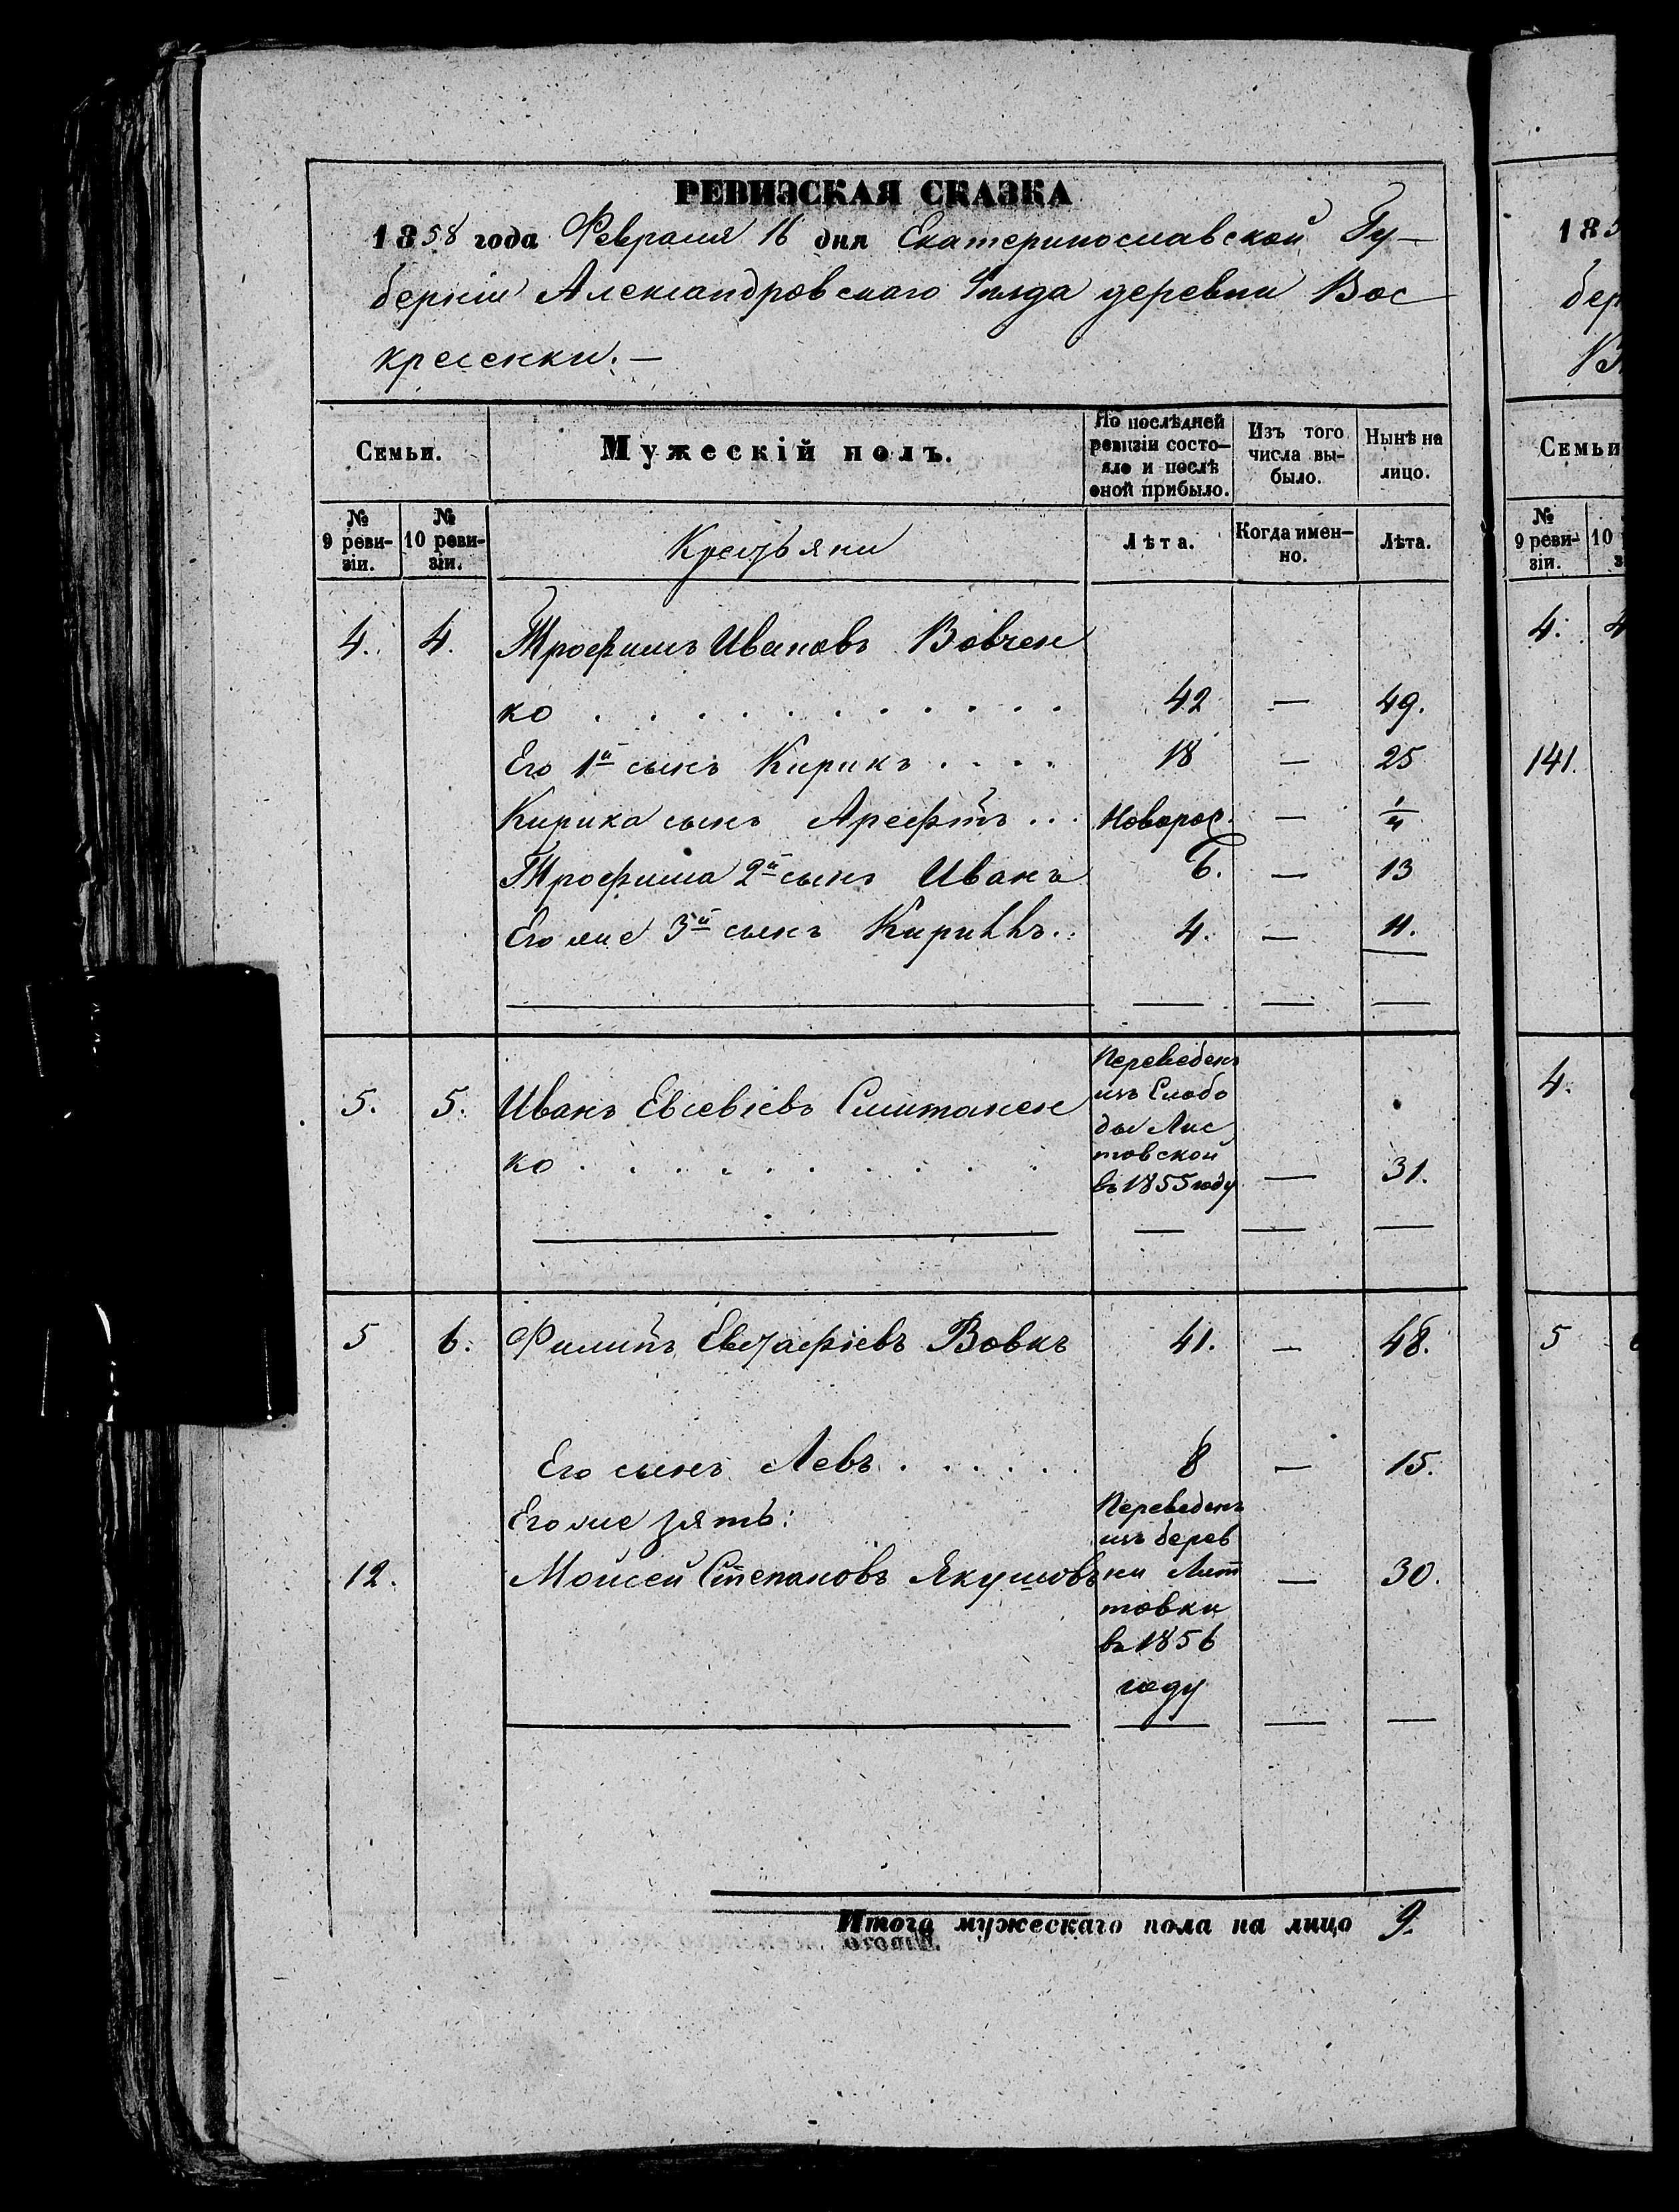 РЕВИЗСКАЯ СКАЗКА
1858 года Февраля 16 дня Екатеринославской Гу-
берніи Александровскаго Уѣзда деревни Вос
кресенки.—
Семьи. Мужескій полъ. По послѣдней ревизіи состо-яло и послѣ оной прибыло. Изъ того числа вы-было. Нынѣ на лицо.
№ 9 реви-зіи. № 10 реви-зіи. Крестьяни Лѣта. Когда имен-но. Лѣта.
4. 4. Трофимъ Ивановъ Вовчен
ко . . . . . . . . . . . 42 — 49.
Его 1й сынъ Кирикъ . . . . 18 — 25
Кирика сынъ Арефтъ . . . Новорос. — 1/4
Трофима 2й сынъ Иванъ 6. — 13
Его же 3й сынъ Кириллъ . . 4. — 11.
5. 5. Иванъ Евсевіевъ Смитанен
ко . . . . . . . . . . — 31.
Переведенъ
изъ Слобо
ды Лис
товской
въ 1855 году
5 6. Филипъ Евстафіевъ Вовкъ 41. — 48.
Его сынъ Левъ . . . . . . 8 — 15.
Его же зять:
12. Моисей Степановъ Якушовъ — 30.
Переведенъ
изъ дерев
ни Лист
товки
въ 1856
году
Итого мужескаго пола на лицо 9.
185
бер
Семьи
№ 9 реви-зіи. 10
4. 4
141.
4.
5